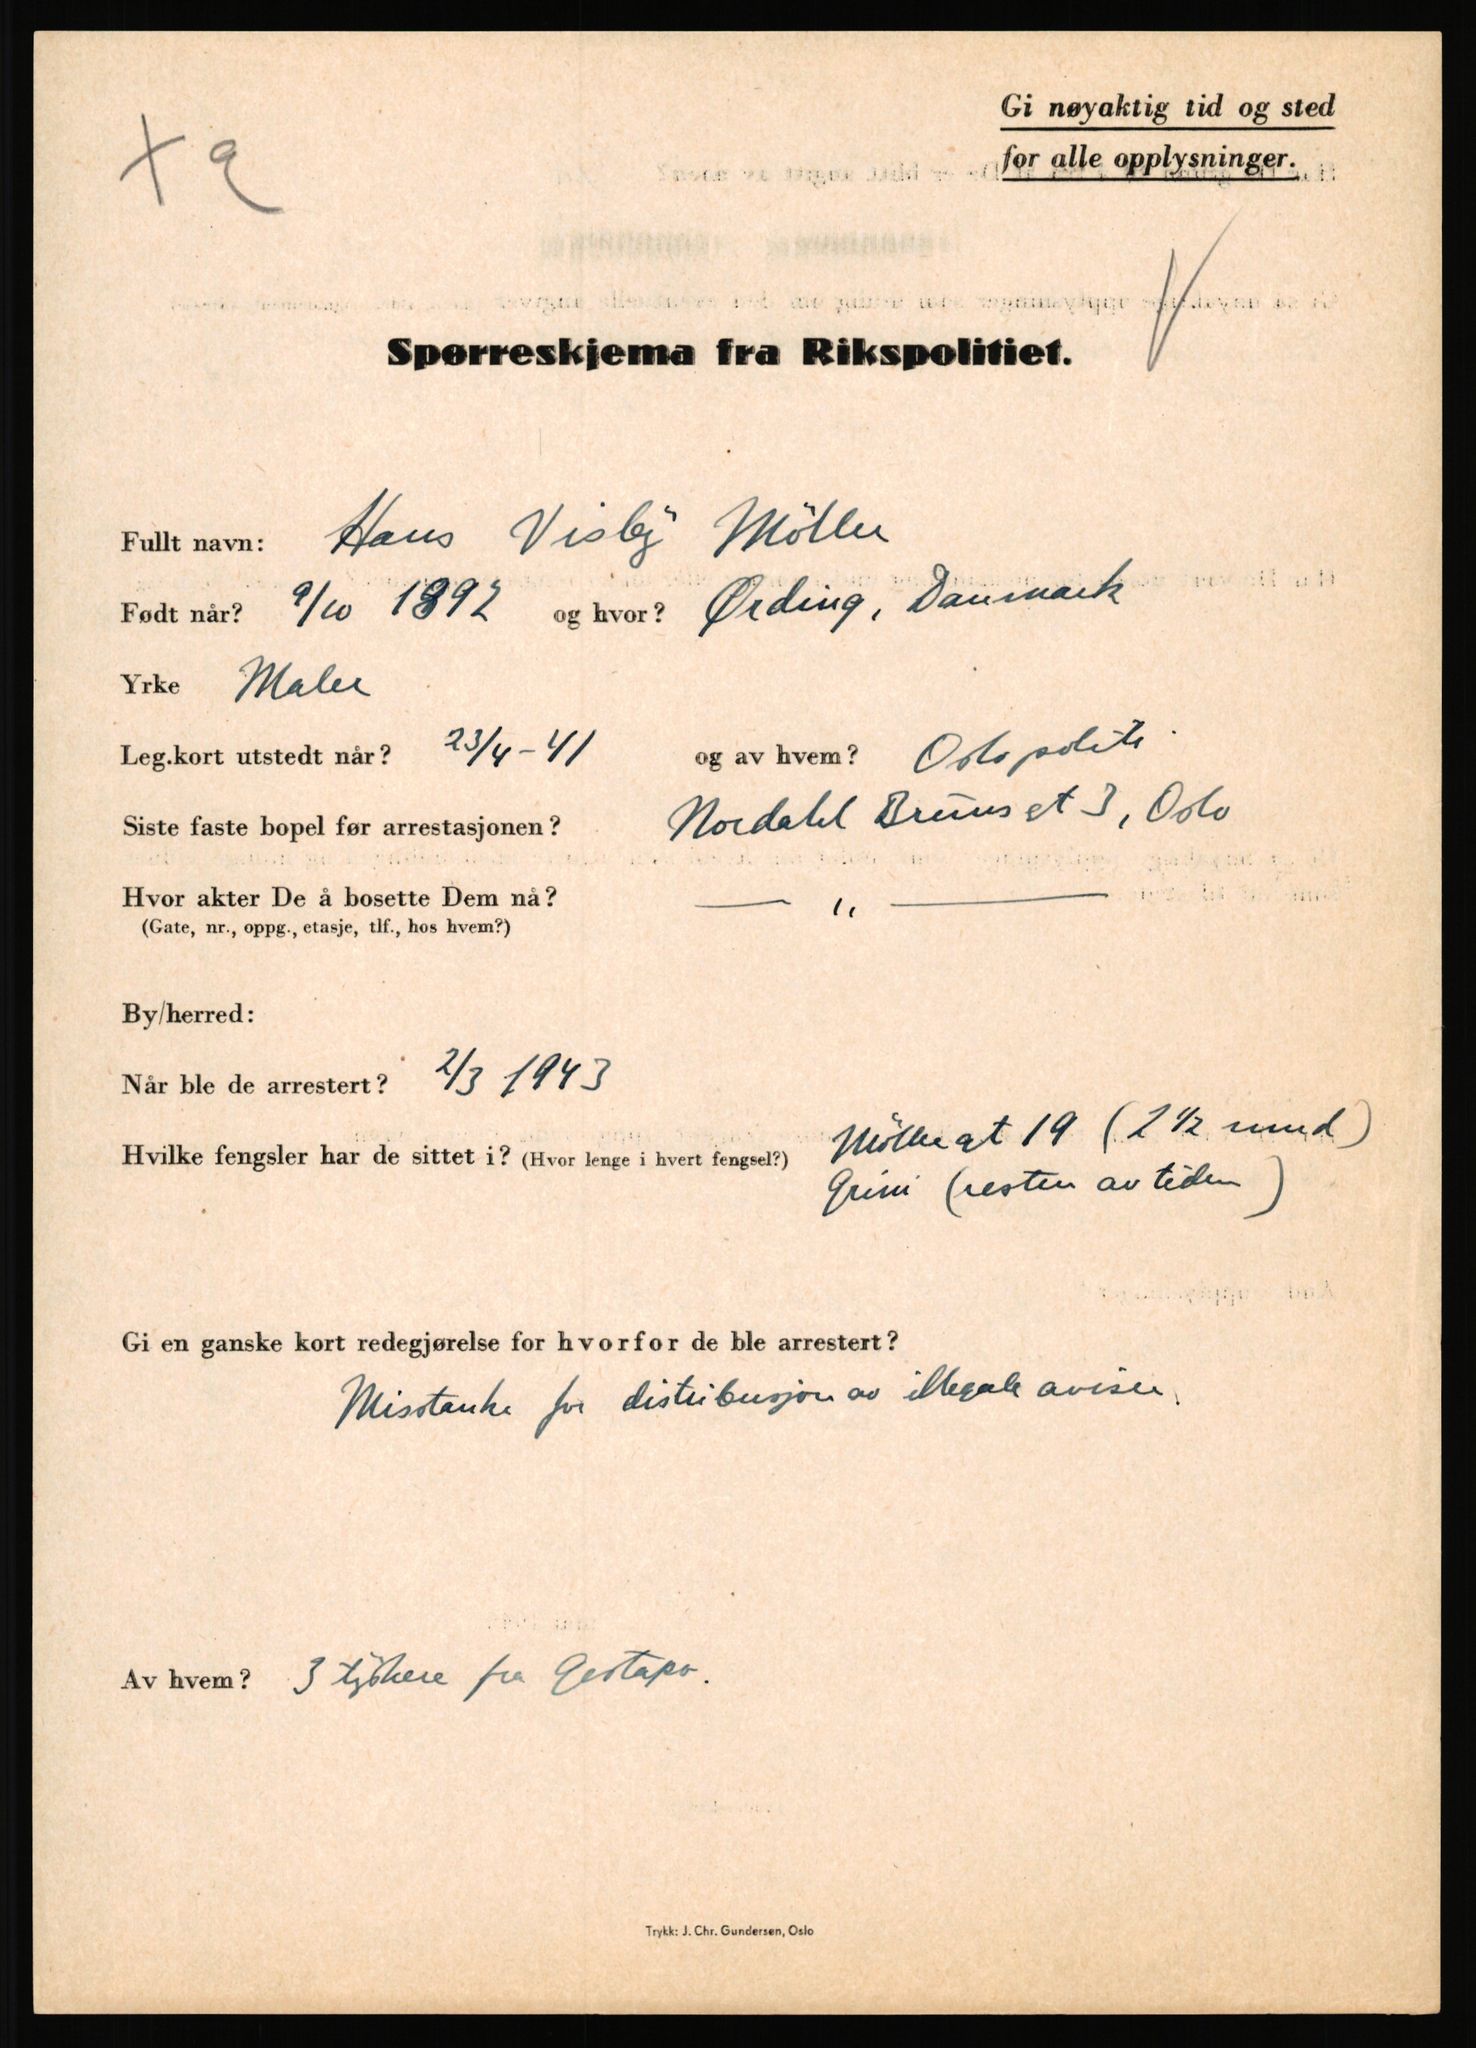 Gi nøyaktig tid og sted
for alle opplysninger.
Spørreskjema fra Rikspolitiet.
Fullt navn: Hans Visby Möller
Født når? 9/10 1892 og hvor? Ørding, Danmark
Yrke Maler
Leg.kort utstedt når? 23/4-41 og av hvem? Oslo politi
Siste faste bopel før arrestasjonen? Nordahl Brunsgt 3, Oslo
Hvor akter De å bosette Dem nå? — " —
(Gate, nr., oppg., etasje, tlf., hos hvem?)
By/herred:
Når ble de arrestert? 2/3 1943
Hvilke fengsler har de sittet i? (Hvor lenge i hvert fengsel?) Möllergt 19 (2 1/2 mnd)
Grini (resten av tiden)
Gi en ganske kort redegjørelse for hvorfor de ble arrestert?
Misstanke for distribusjon av illegale aviser.
Av hvem? 3 tyskere fra Gestapo.
Trykk: J. Chr. Gundersen, Oslo